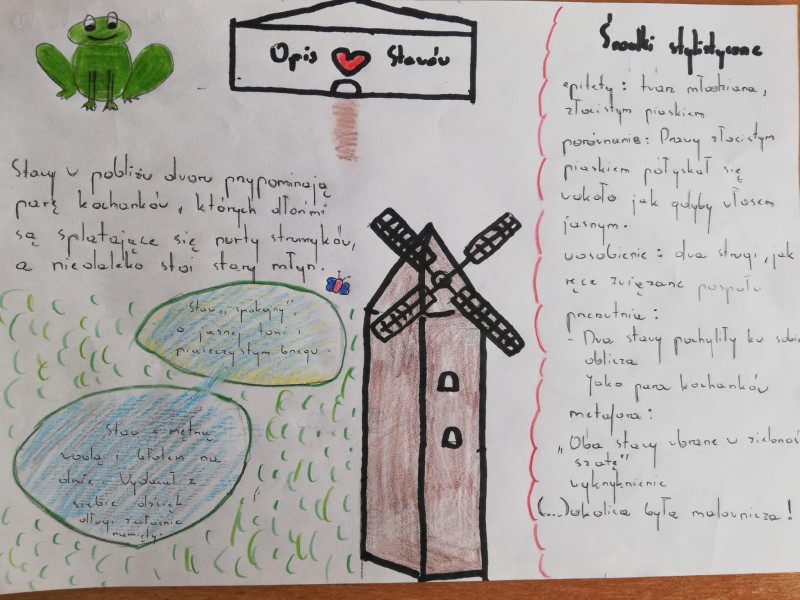 Opis Stawów
Stawy w pobliżu dworu przypominają
parę kochanków, których dłońmi
są splatające się nurty strumyków,
a niedaleko stoi stary młyn.
Staw „spokojny”,
o jasnej toni i
piaszczystym brzegu.
Staw z mętną
wodą i błotem na
dnie. Wydawał z
siebie dźwięk
długi żałośnie
namięty.
Środki stylistyczne
epitety: twarz młodziana,
złocistym piaskiem
porównanie: Prawy złocistym
piaskiem połyskał się
wokoło jak gdyby włosem
jasnym.
uosobienie: dwa strugi, jak
ręce związane pospołu
przerzutnia:
- Dwa stawy pochyliły ku sobie
oblicza
Jako para kochanków
metafora:
„Oba stawy ubrane w srebność
szatę”
wykrzyknienie
(...) okolica była malownicza!